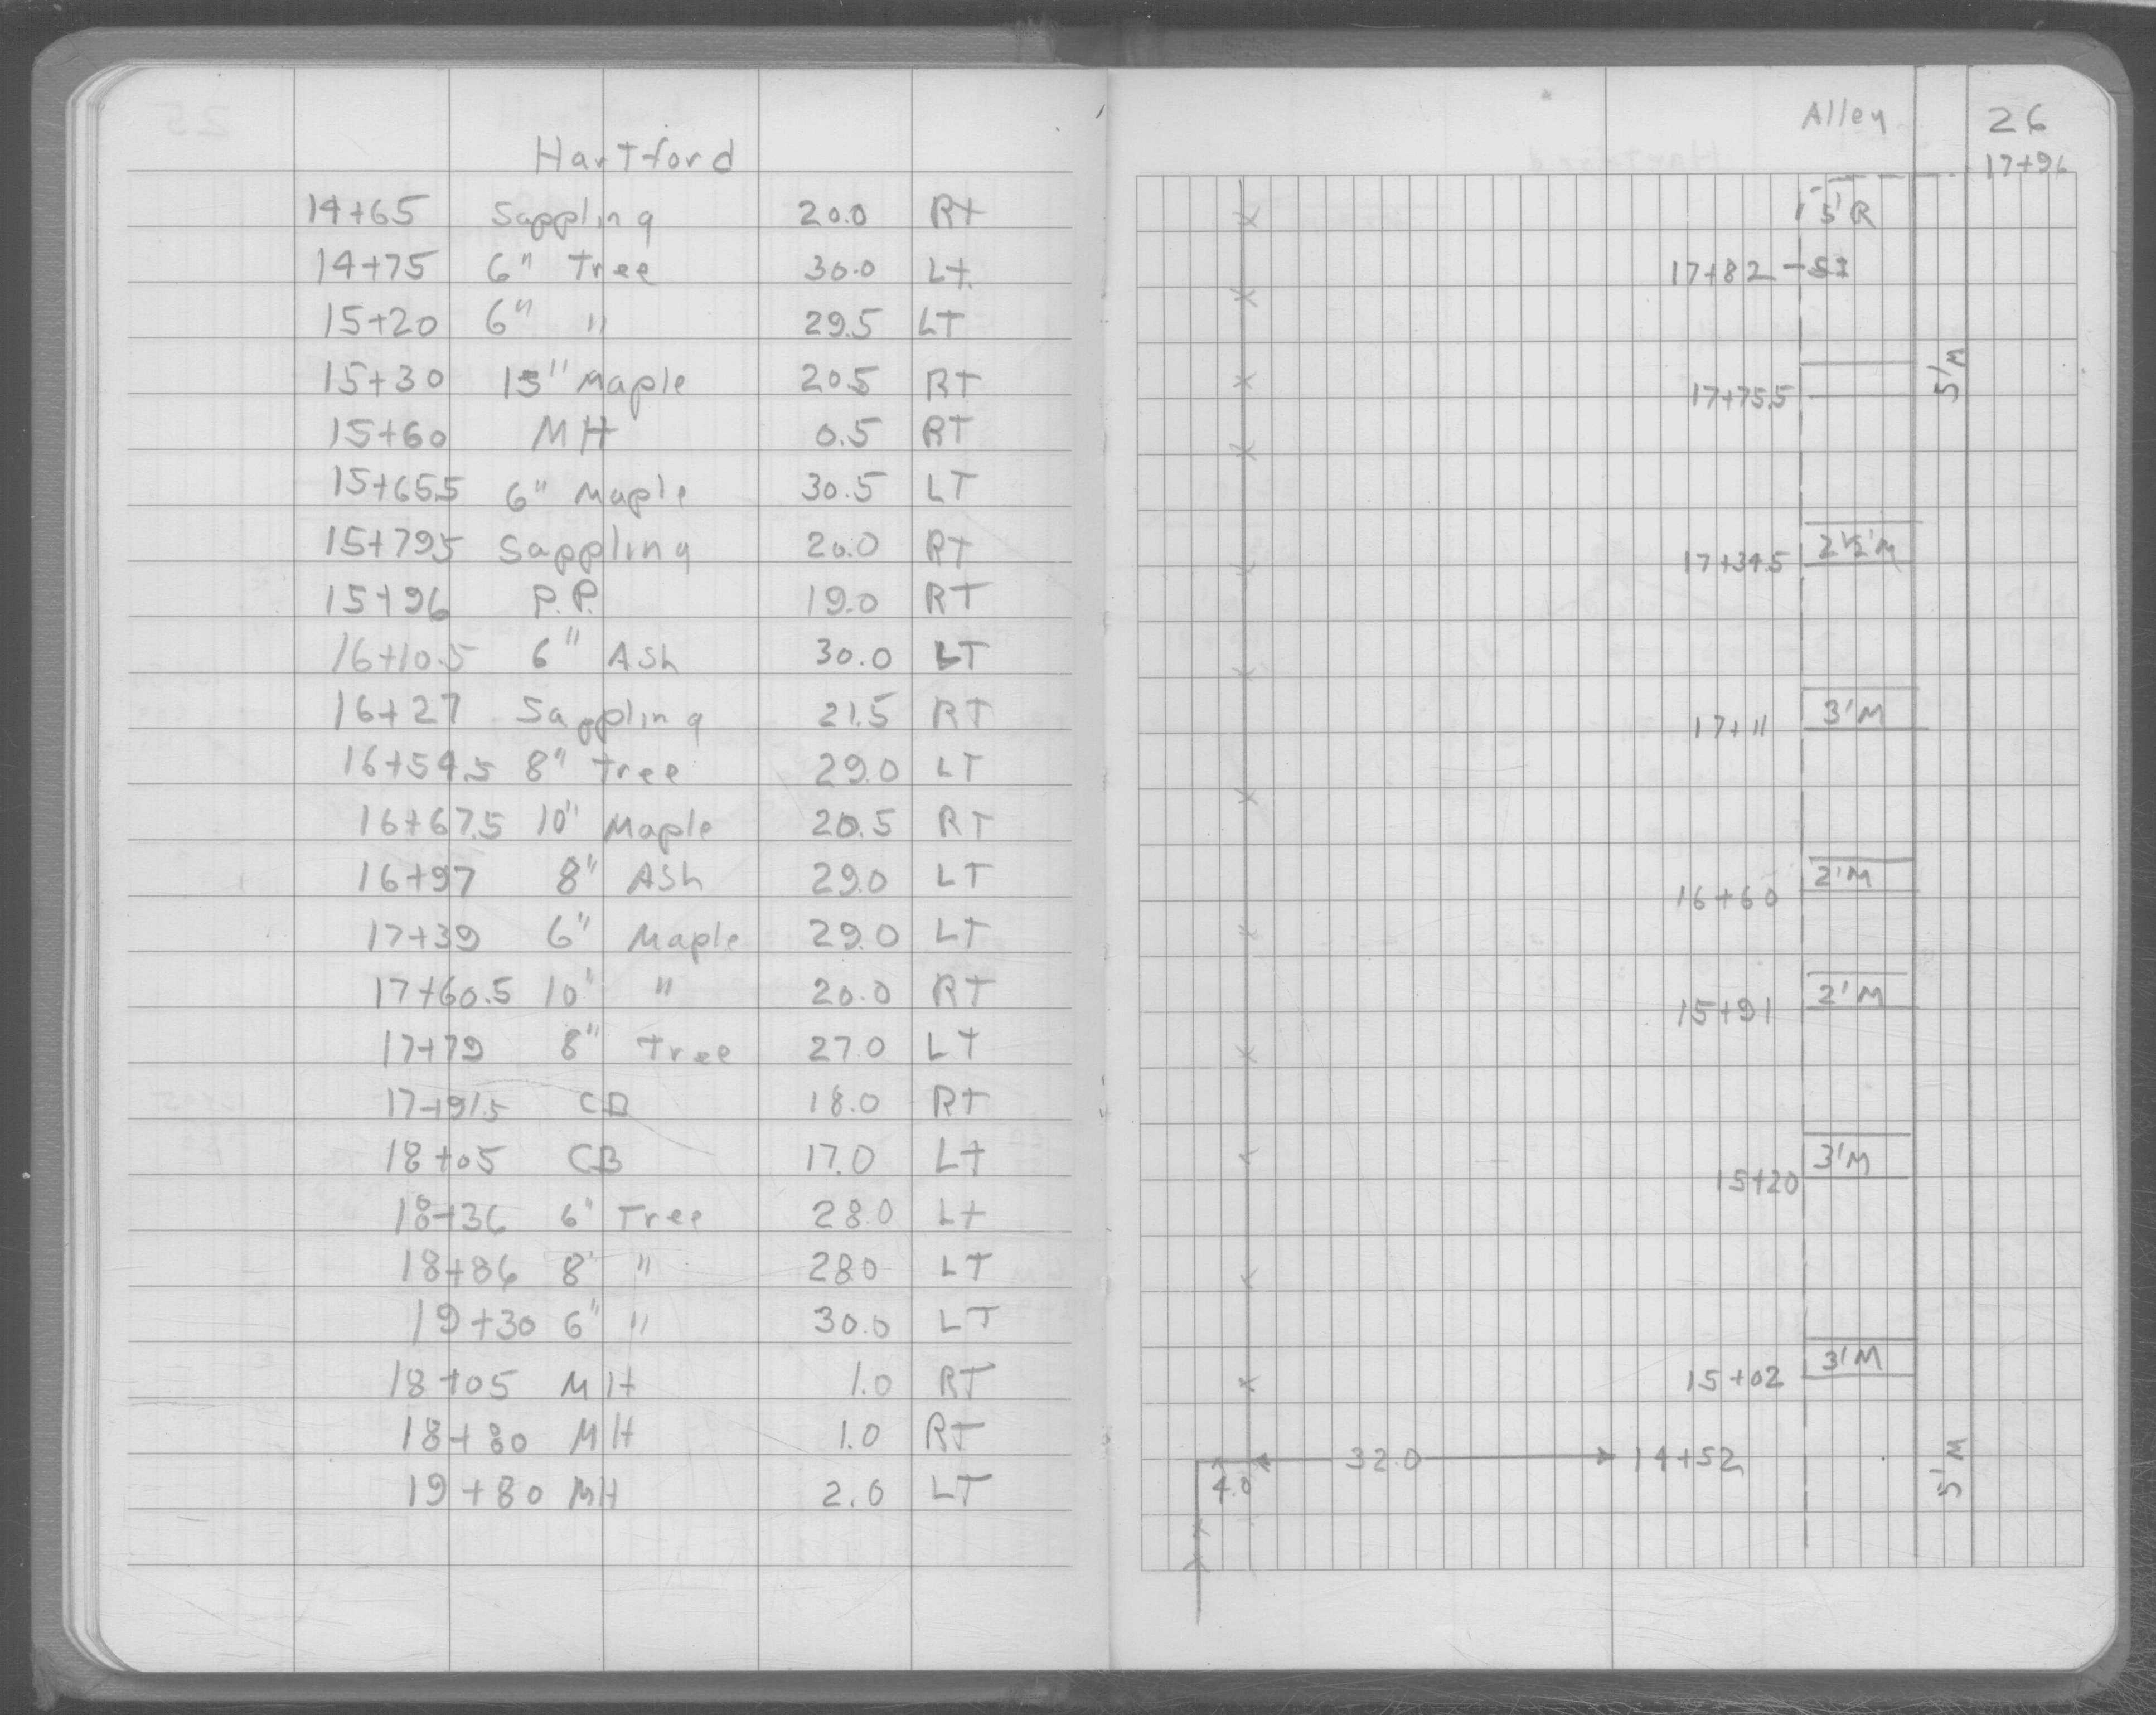 Hartford
14+65 Sappling 20.0 Rt
14+75 6" Tree 30.0 Lt.
15+20 6" " 29.5 LT
15+30 15" Maple 20.5 RT
15+60 MH 0.5 RT
15+65.5 6" Maple 30.5 LT
15+79.5 Sappling 20.0 RT
15+96 P.P. 19.0 RT
16+10.5 6" Ash 30.0 LT
16+27 Sappling 21.5 RT
16+54.5 8" Tree 29.0 LT
16+67.5 10" Maple 20.5 RT
16+97 8" Ash 29.0 LT
17+39 6" Maple 29.0 LT
17+60.5 10" " 20.0 RT
17+79 8" Tree 27.0 LT
17+91.5 CB 18.0 RT
18+05 CB 17.0 Lt
18+36 6" Tree 28.0 Lt
18+86 8" " 28.0 LT
19+30 6" " 30.0 LT
18+05 MH 1.0 RT
18+80 MH 1.0 RT
19+80 MH 2.0 LT
Alley 26
17+96
5'R
17+82
5'M
17+75.5
17+34.5 2½'M
17+11 3'M
16+60 2'M
15+91 2'M
15+20 3'M
15+02 3'M
32.0 14+52
4.0
5'M